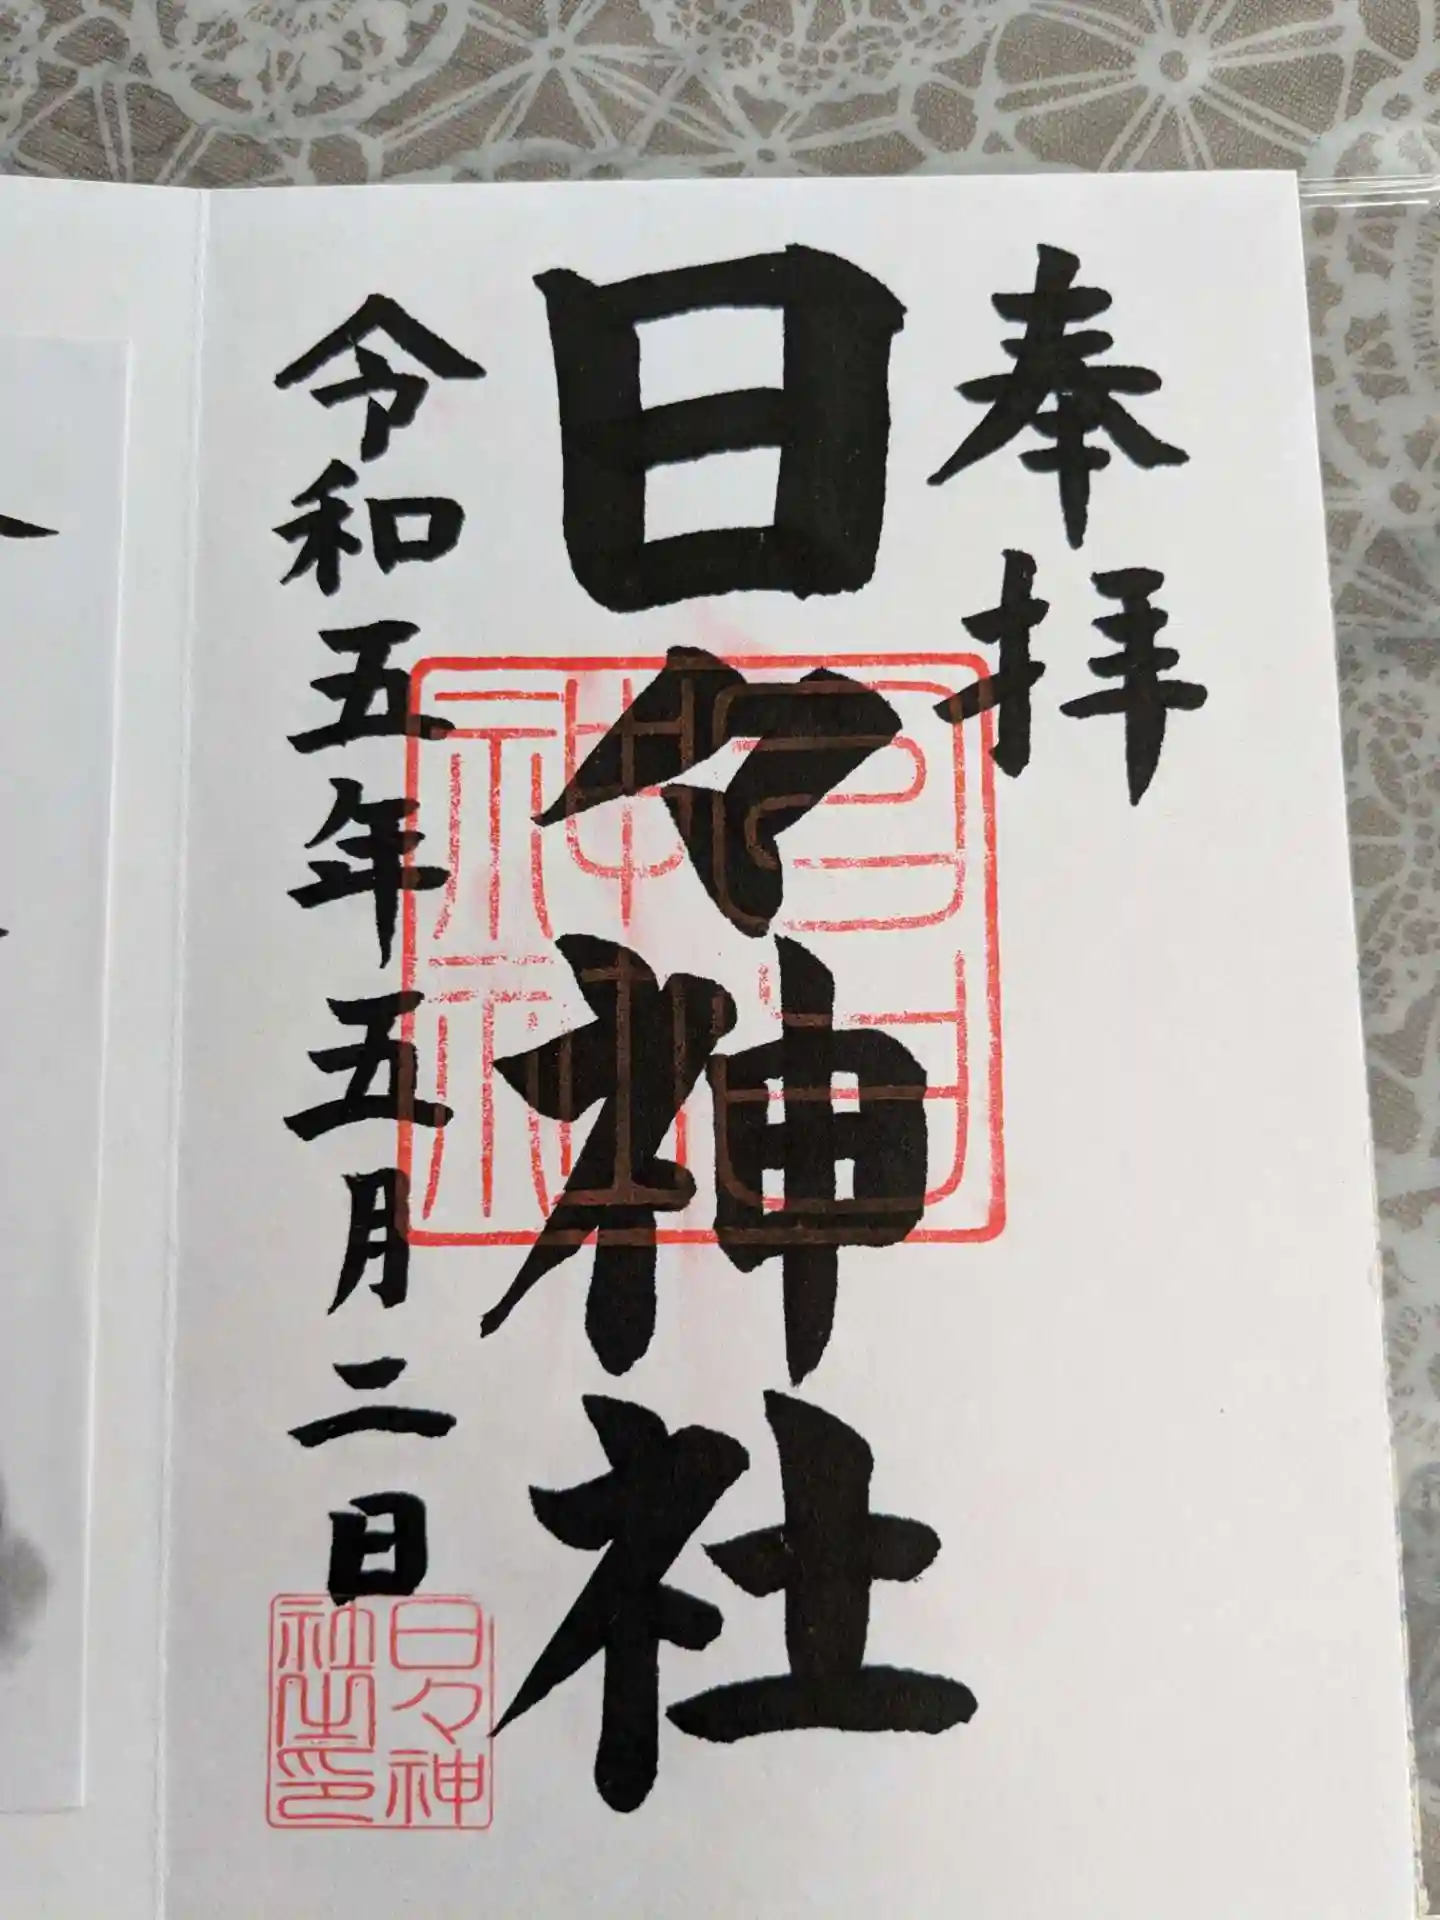 奉拝
日々神社
令和五年五月二日
日々神
社之印